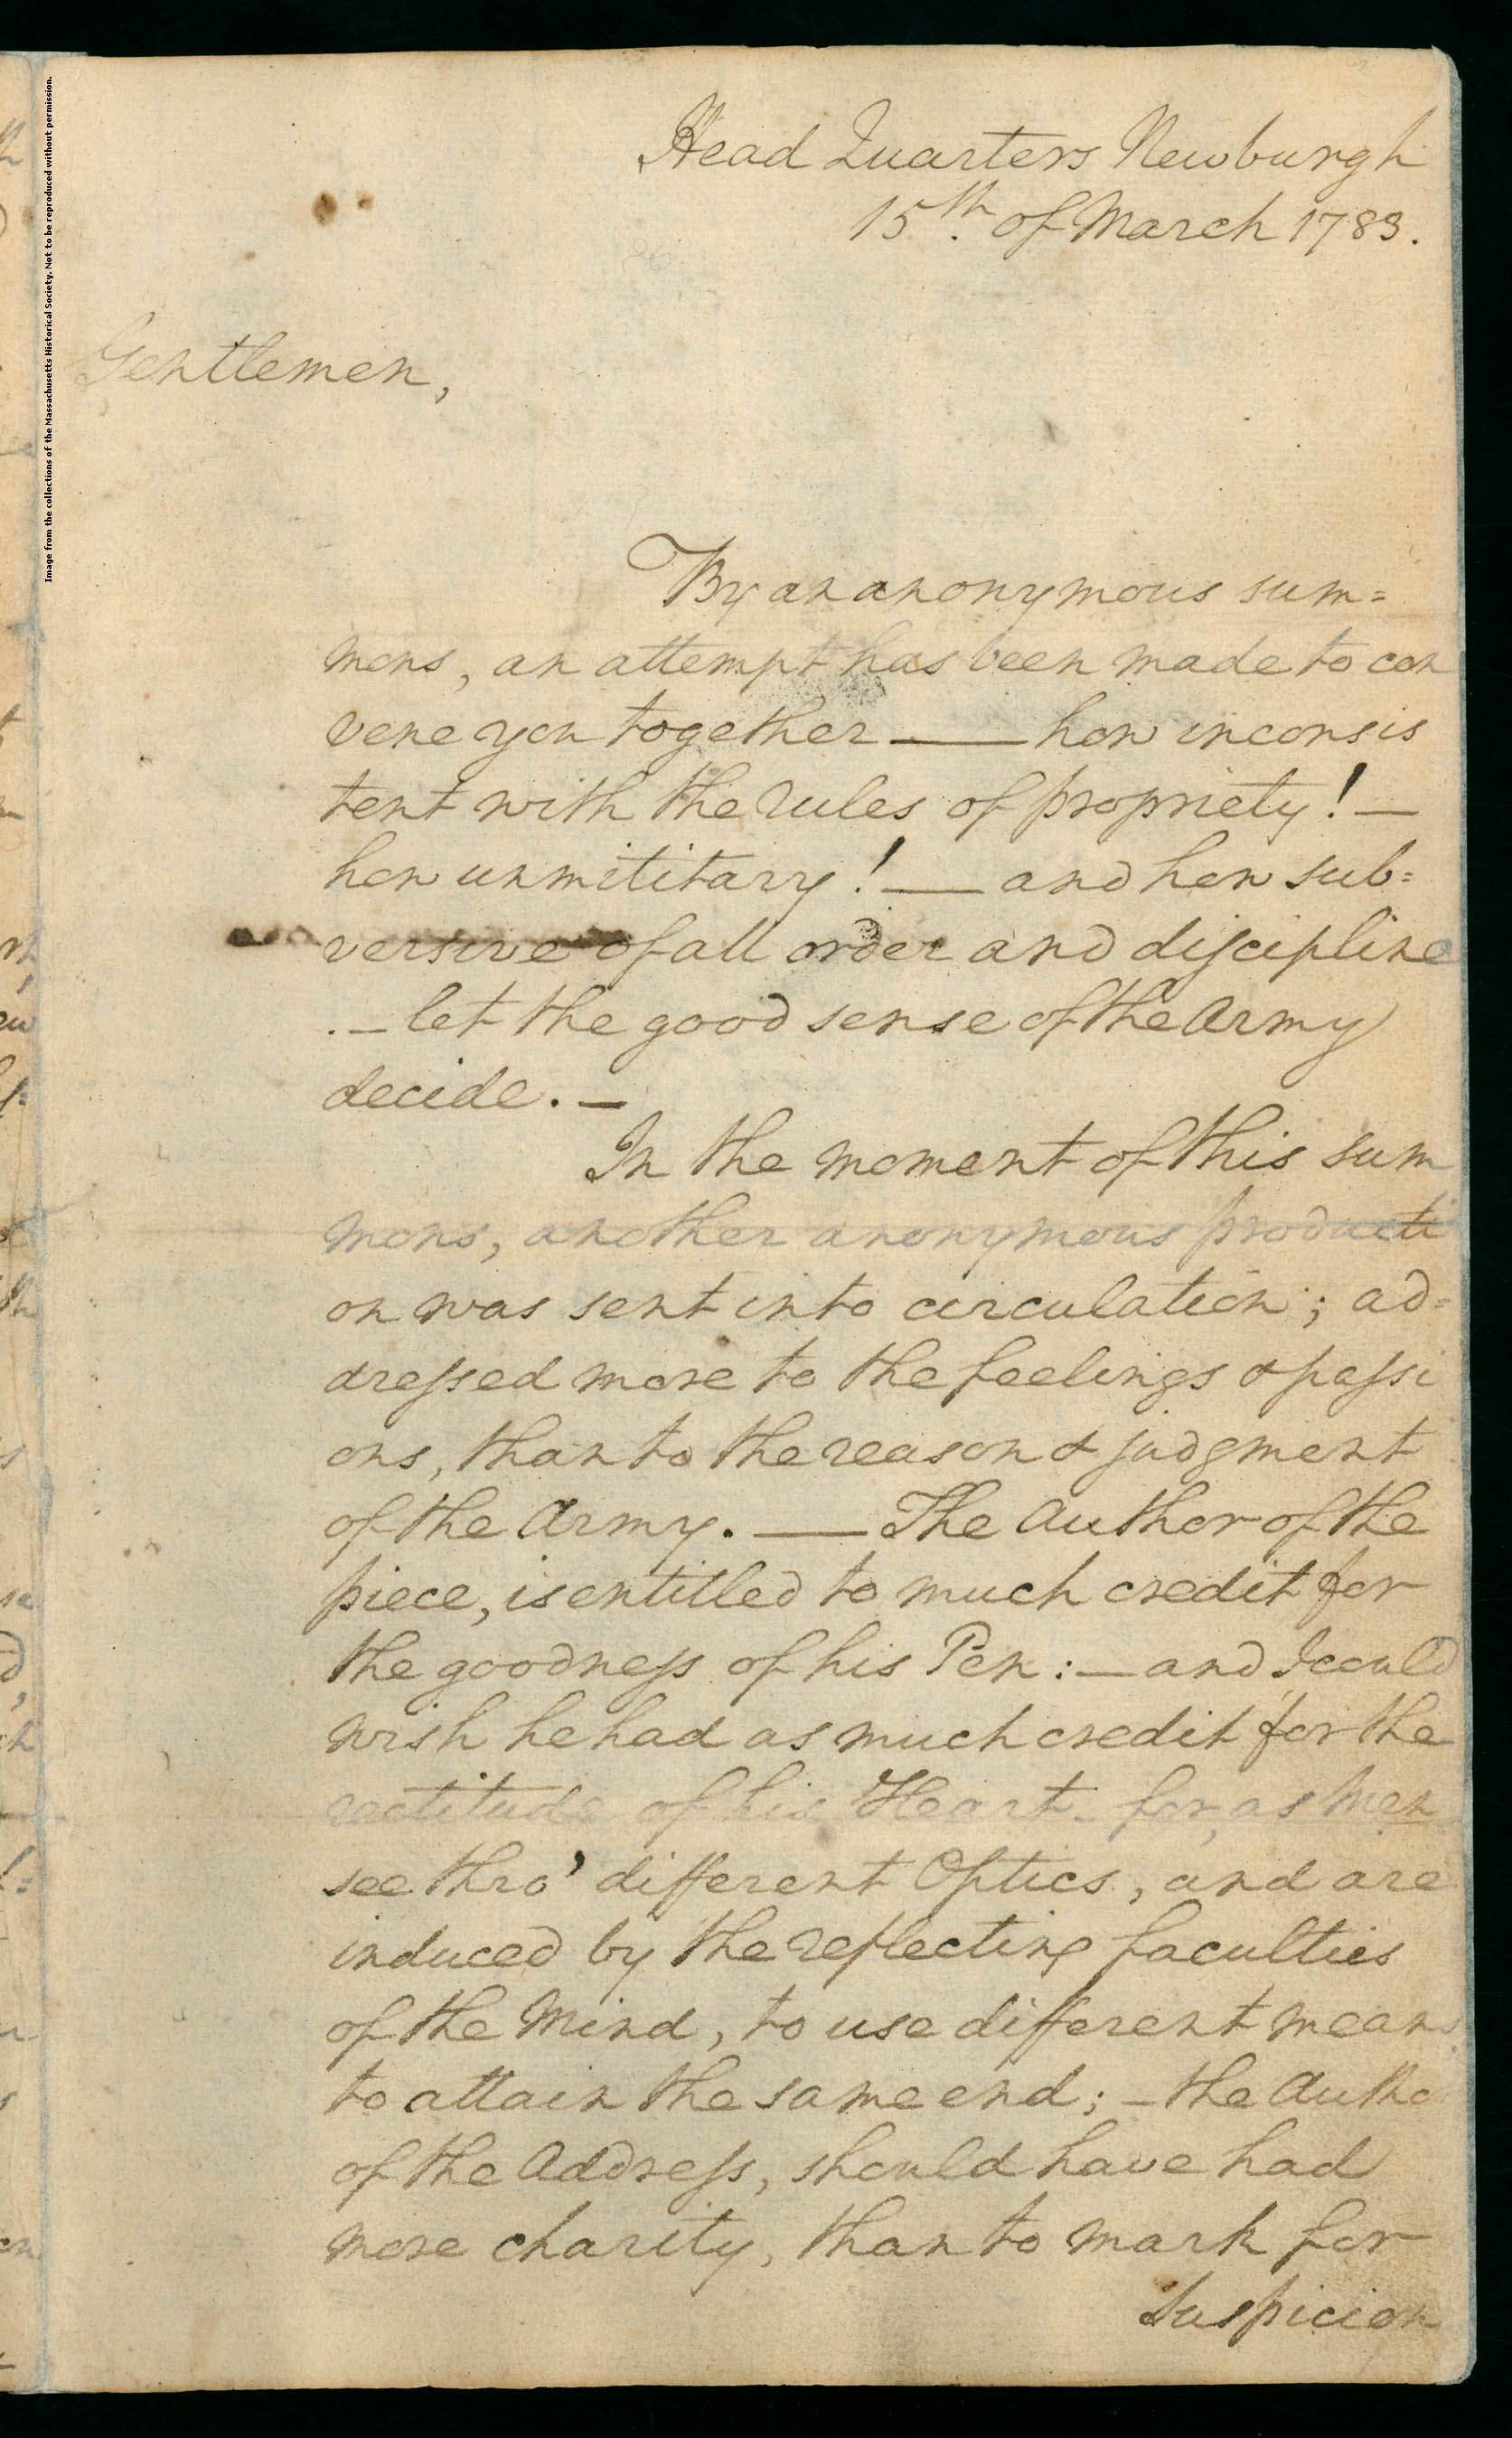 Image from the collections of the Massachusetts Historical Society. Not to be reproduced without permission.
Head Quarters Newburgh
15th. of March 1783.
Gentlemen,
By an anonymous sum=
mons, an attempt has been made to con
vene you together —— how inconsis
tent with the rules of propriety! —
how unmilitary! —— and how sub=
versive of all order and discipline
. — let the good sense of the Army
decide. —
In the moment of this sum
mons, another anonymous producti
on was sent into circulation; ad=
dressed more to the feelings & passi
ons, than to the reason & judgment
of the Army. —— The Author of the
piece, is entitled to much credit for
the goodness of his Pen: — and I could
wish he had as much credit for the
rectitude of his Heart — for, as Men
see thro' different Optics, and are
induced by the reflecting faculties
of the Mind, to use different means
to attain the same end; — the Autho
of the Address, should have had
more charity, than to mark for
Suspicion